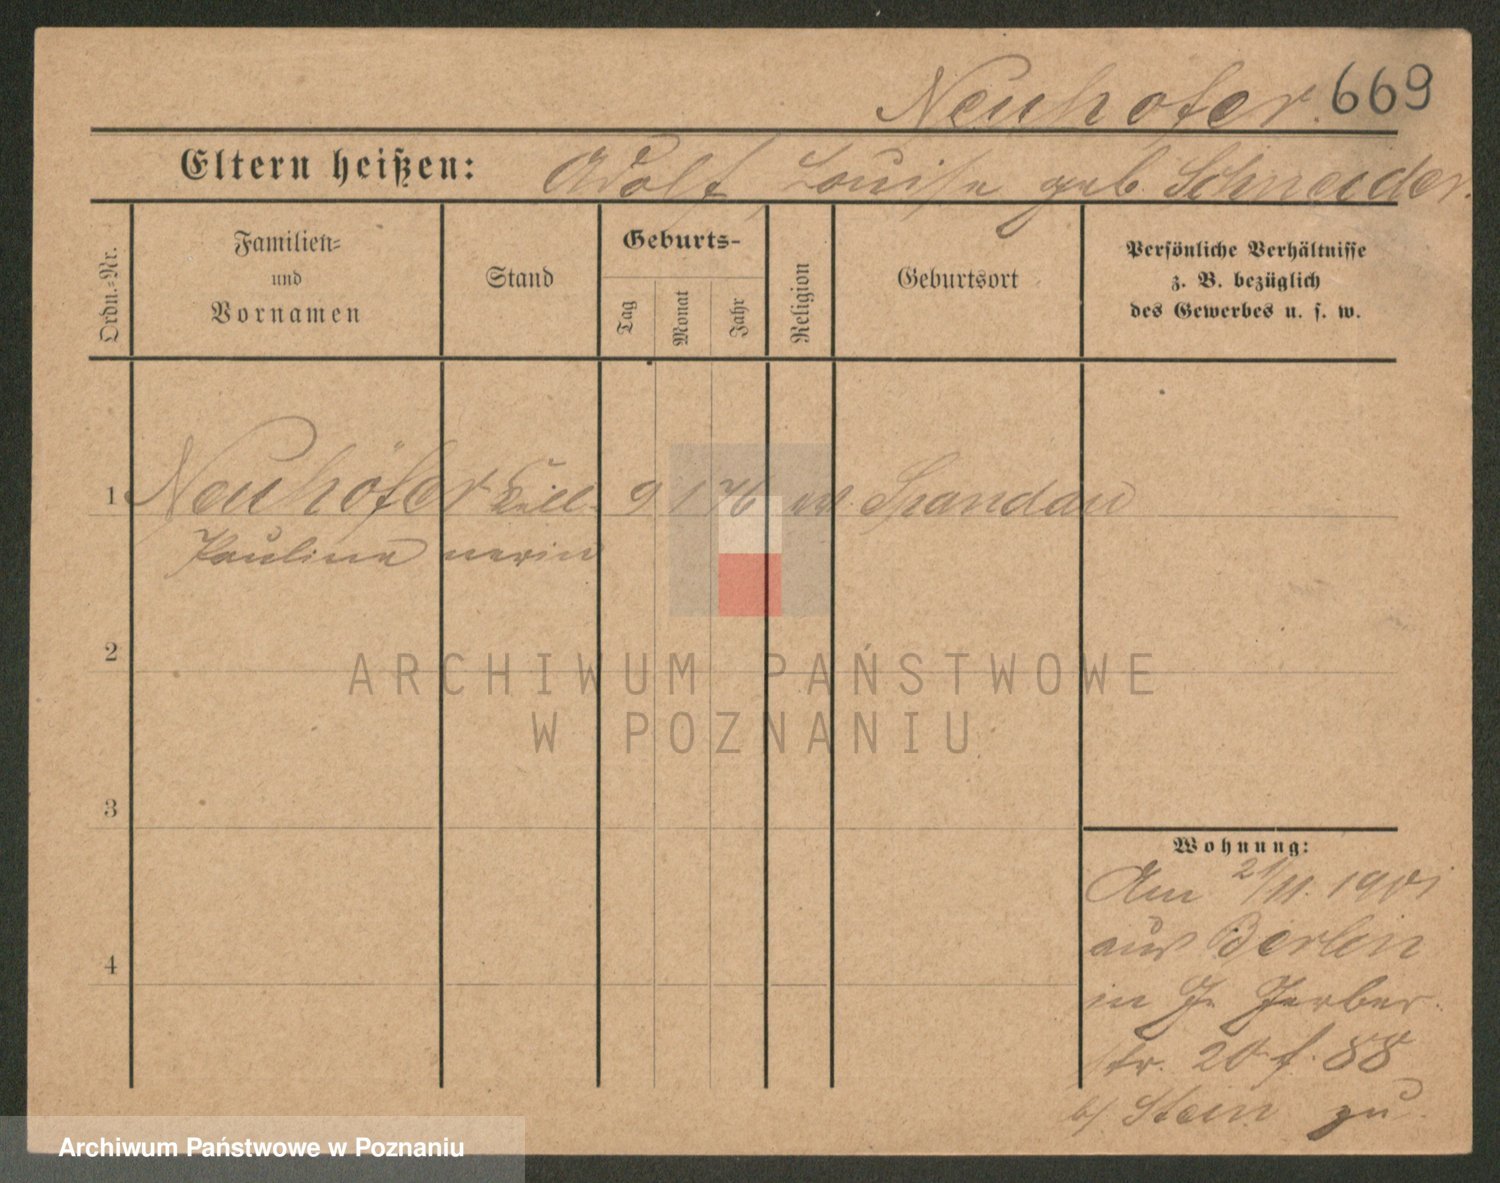 Neuhöfer. 669
Eltern heißen: Adolf, Louise geb. Schneider.
Ordn.=Nr.
Familien=
und
Vornamen
Stand
Geburts-
Tag
Monat
Jahr
Religion
Geburtsort
Persönliche Verhältnisse
z. B. bezüglich
des Gewerbes u. s. w.
1 Neuhöfer Kell- 9 1 76 Spandau
Pauline nerin
2
3
4
Wohnung:
Am 21/11. 1901
aus Berlin
in Gerber
str. 20 f. 88
b/ Stein zu.
ARCHIWUM PAŃSTWOWE
W POZNANIU
Archiwum Państwowe w Poznaniu